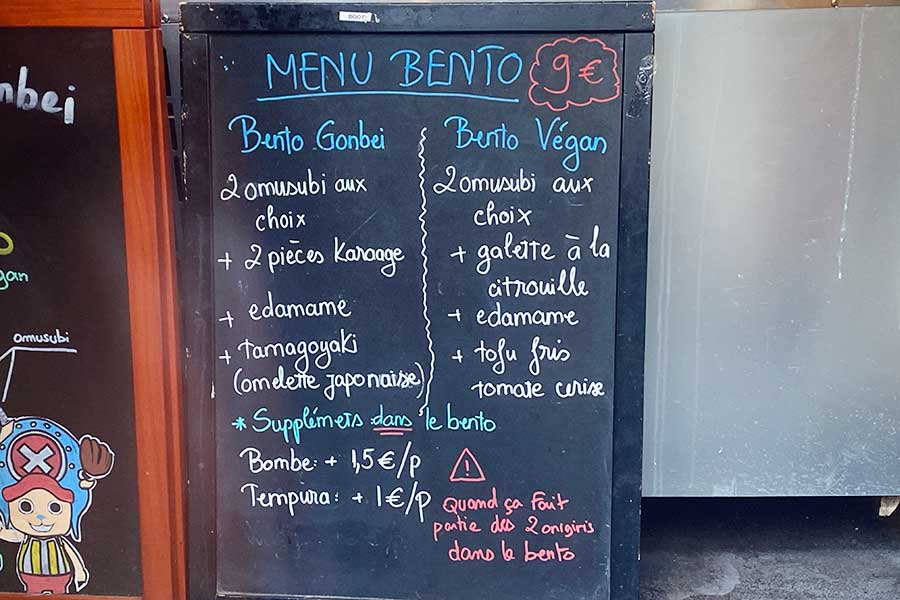 BOOT
MENU BENTO 9€
Bento Gonbei
2 omusubi aux
choix
+ 2 pièces Karaage
+ edamame
+ tamagoyaki
(omelette japonaise)
Bento Végan
2 omusubi aux
choix
+ galette à la
citrouille
+ edamame
+ tofu fris
tomate cerise
* Supplémets dans le bento
Bombe: + 1,5€/p
Tempura: + 1€/p
Quand ça fait
partie des 2 onigiris
dans le bento
nbei
gan
omusubi